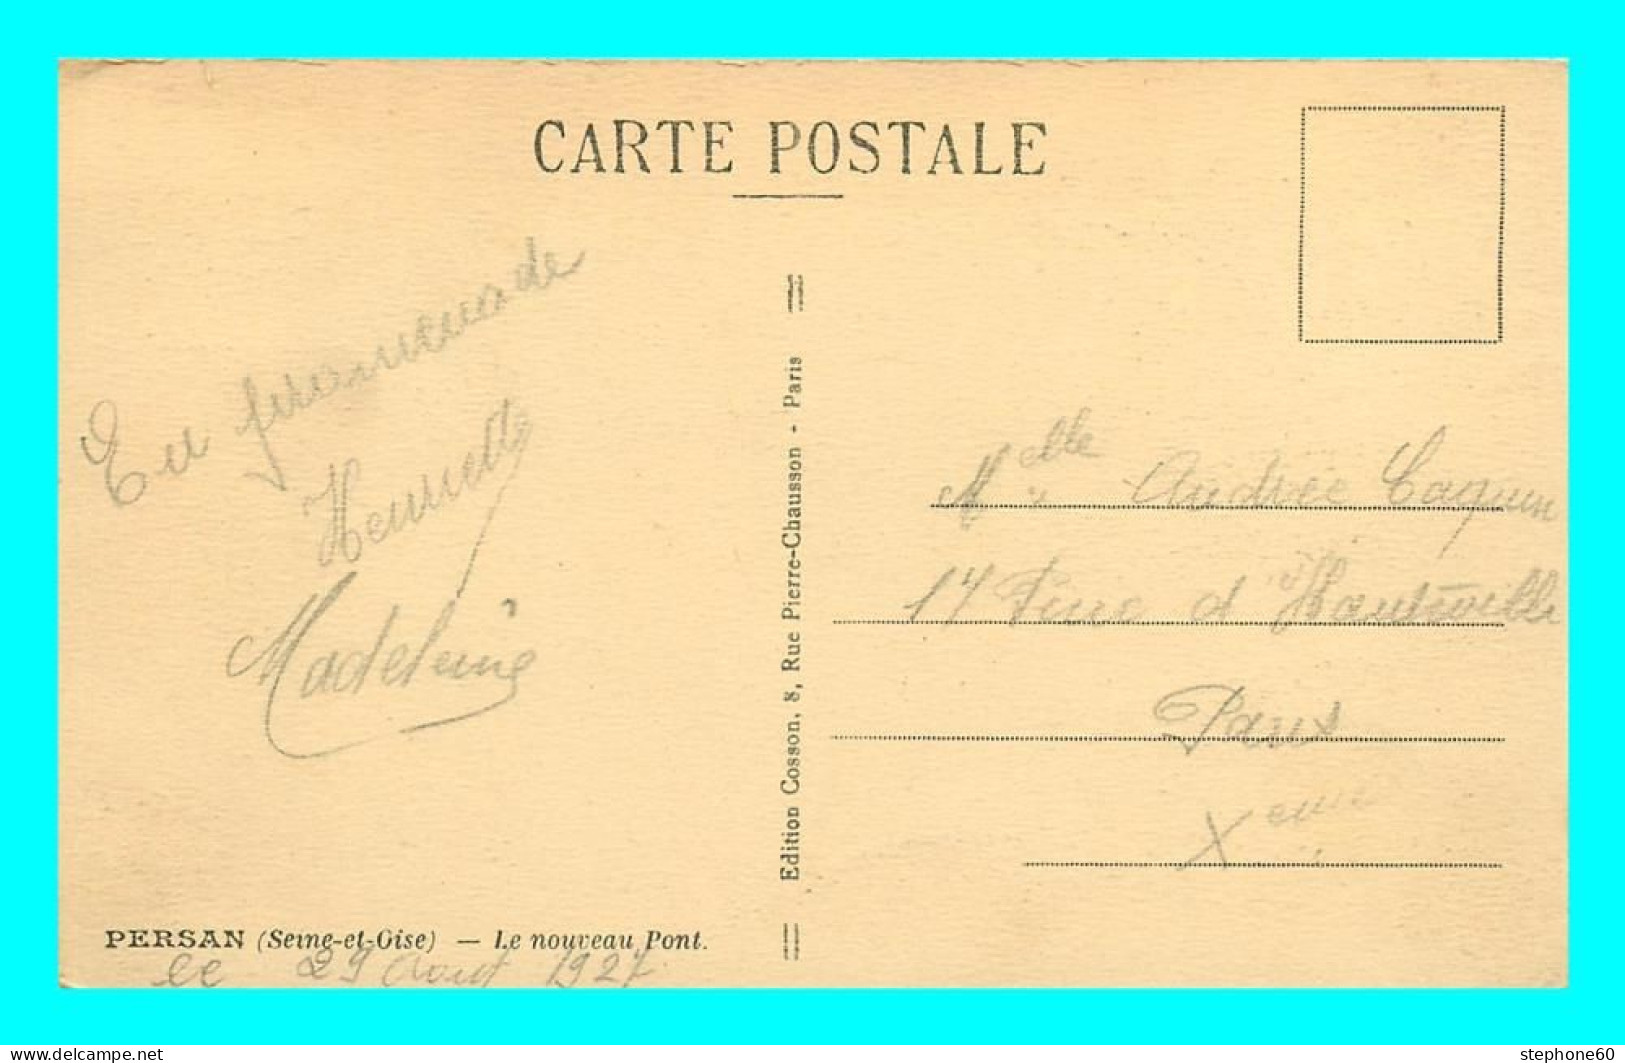 CARTE POSTALE
En promenade
Madeleine
PERSAN (Seine-et-Oise) — Le nouveau Pont.
le 29 Aout 1927
Edition Cosson, 8, Rue Pierre-Chausson - Paris
Melle Andrée
17 Rue d'Hauteville
Paris
Xeme
www.delcampe.net
stephone60